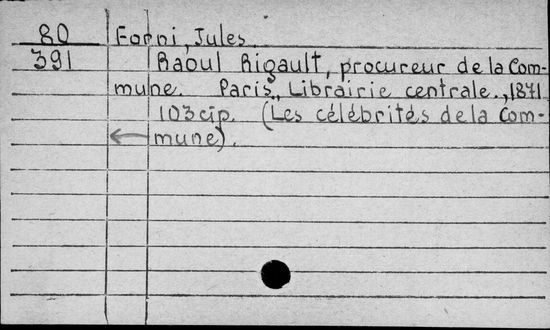 80 Forni, Jules
391 Raoul Rigault, procureur de la Com-
mune. Paris, Librairie centrale., 1871
103 p. (Les célébrités de la Com-
mune).